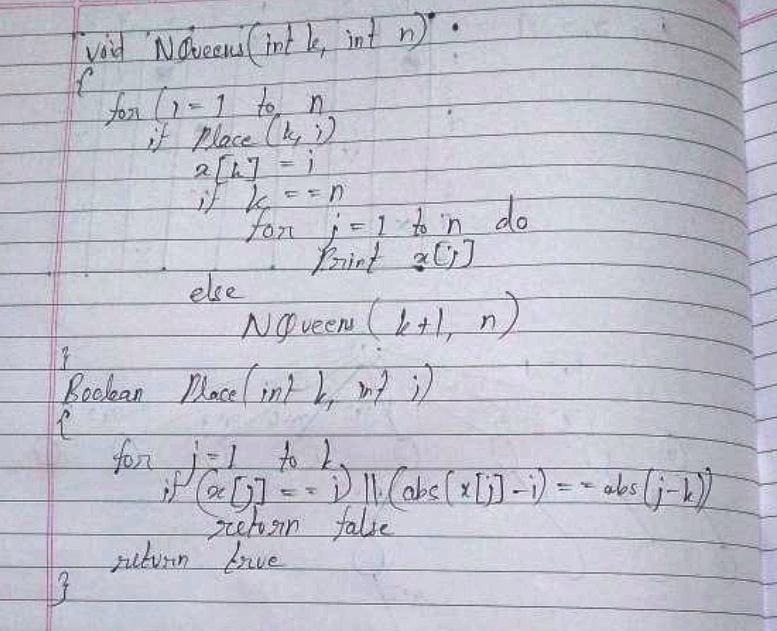 void NQueens(int k, int n)
{
for (i = 1 to n
if Place (k, i)
x[k] = i
if k == n
for j = 1 to n do
Print x[j]
else
NQueens (k+1, n)
}
Boolean Place(int k, int i)
{
for j = 1 to k
if (x[j] == i) || (abs(x[j] - i) == abs(j-k))
return false
return true
}